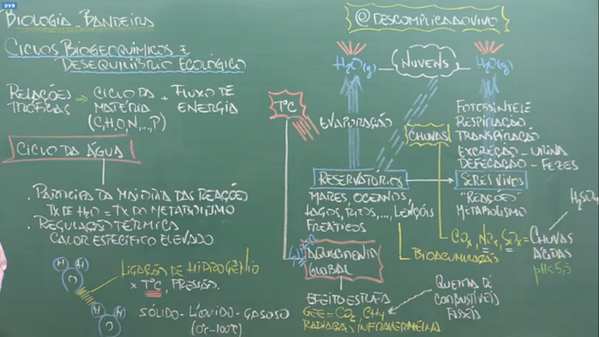 DVR
BIOLOGIA BANDEIRA
CICLOS BIOGEOQUÍMICOS E
DESEQUILÍBRIO ECOLÓGICO
RELAÇÕES
TRÓFICAS
CICLO DA
MATÉRIA
(C,H,O,N,...,P)
+ FLUXO DE
ENERGIA
CICLO DA ÁGUA
. PARTICIPA DA MAIORIA DAS REAÇÕES
TX DE H2O = TX DO METABOLISMO
. REGULAÇÃO TÉRMICA
CALOR ESPECÍFICO ELEVADO
H H
O
LIGAÇÃO DE HIDROGÊNIO
x T°C, PRESSÃO.
H H
O
SÓLIDO - LÍQUIDO - GASOSO
(0°-100°C)
@DESCOMPLICAOVIVO
H2O(g)
NUVENS
H2O(g)
T°C
EVAPORAÇÃO
CHUVAS
FOTOSSÍNTESE
RESPIRAÇÃO
TRANSPIRAÇÃO
EXCREÇÃO - URINA
DEFECAÇÃO - FEZES
RESERVATÓRIOS
MARES, OCEANOS
LAGOS, RIOS, ..., LENÇÓIS
FREÁTICOS
SERES VIVOS
"REAÇÕES"
METABOLISMO
H2SO4
COx, NOx, SOx = CHUVAS
ÁCIDAS
BIOACUMULAÇÃO
AQUECIMENTO
GLOBAL
EFEITO ESTUFA
GEE = CO2, CH4
RADIAÇÃO INFRAVERMELHA
QUEIMA DE
COMBUSTÍVEIS
FÓSSEIS